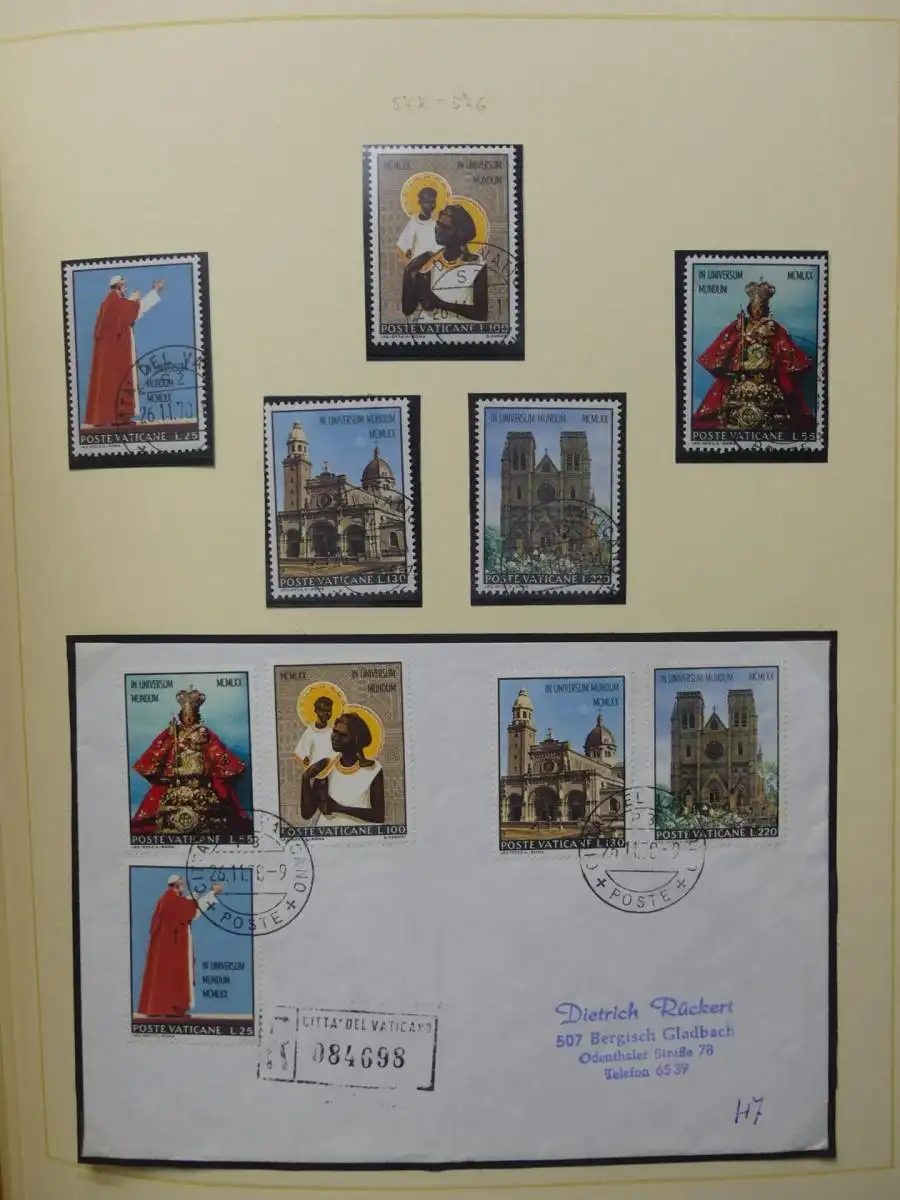 572 - 576
MCMLXX
IN UNIVERSUM
MUNDUM
POSTE VATICANE L.100
In Universum
MUNDUM
MCMLXX
26.11.70
POSTE VATICANE L.25
IN UNIVERSUM
MUNDUM
MCMLXX
POSTE VATICANE L.55
IN UNIVERSUM MUNDUM
MCMLXX
POSTE VATICANE L.130
IN UNIVERSUM MUNDUM
MCMLXX
POSTE VATICANE L.220
IN UNIVERSUM
MUNDUM
MCMLXX
POSTE VATICANE L.55
MCMLXX
IN UNIVERSUM
MUNDUM
POSTE VATICANE L.100
IN UNIVERSUM MUNDUM
MCMLXX
POSTE VATICANE L.130
IN UNIVERSUM MUNDUM
MCMLXX
POSTE VATICANE L.220
26.11.70-9
POSTE
POSTE
IN UNIVERSUM
MUNDUM
MCMLXX
POSTE VATICANE L.25
CITTA' DEL VATICANO
084698
Dietrich Rückert
507 Bergisch Gladbach
Odenthaler Straße 78
Telefon 6539
H7